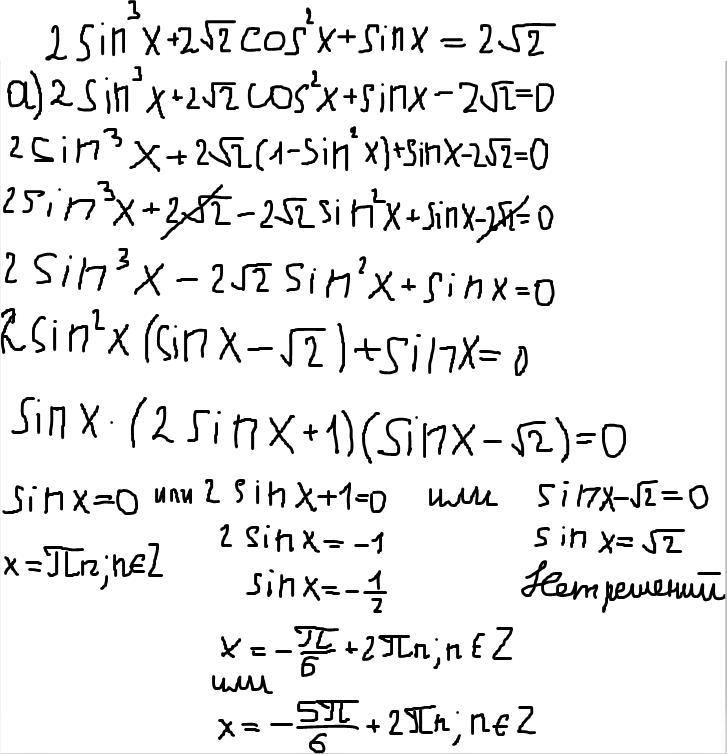 2sin³x+2√2cos²x+sinx=2√2
a)2sin³x+2√2cos²x+sinx-2√2=0
2sin³x+2√2(1-sin²x)+sinx-2√2=0
2sin³x+2√2-2√2sin²x+sinx-2√2=0
2sin³x-2√2sin²x+sinx=0
2sin²x(sinx-√2)+sinx=0
sinx·(2sinx+1)(sinx-√2)=0
sinx=0 или 2sinx+1=0 или sinx-√2=0
x=πn;n∈Z 2sinx=-1 sinx=√2
sinx=-1/2 Нет решений
x=-π/6+2πn;n∈Z
или
x=-5π/6+2πn;n∈Z